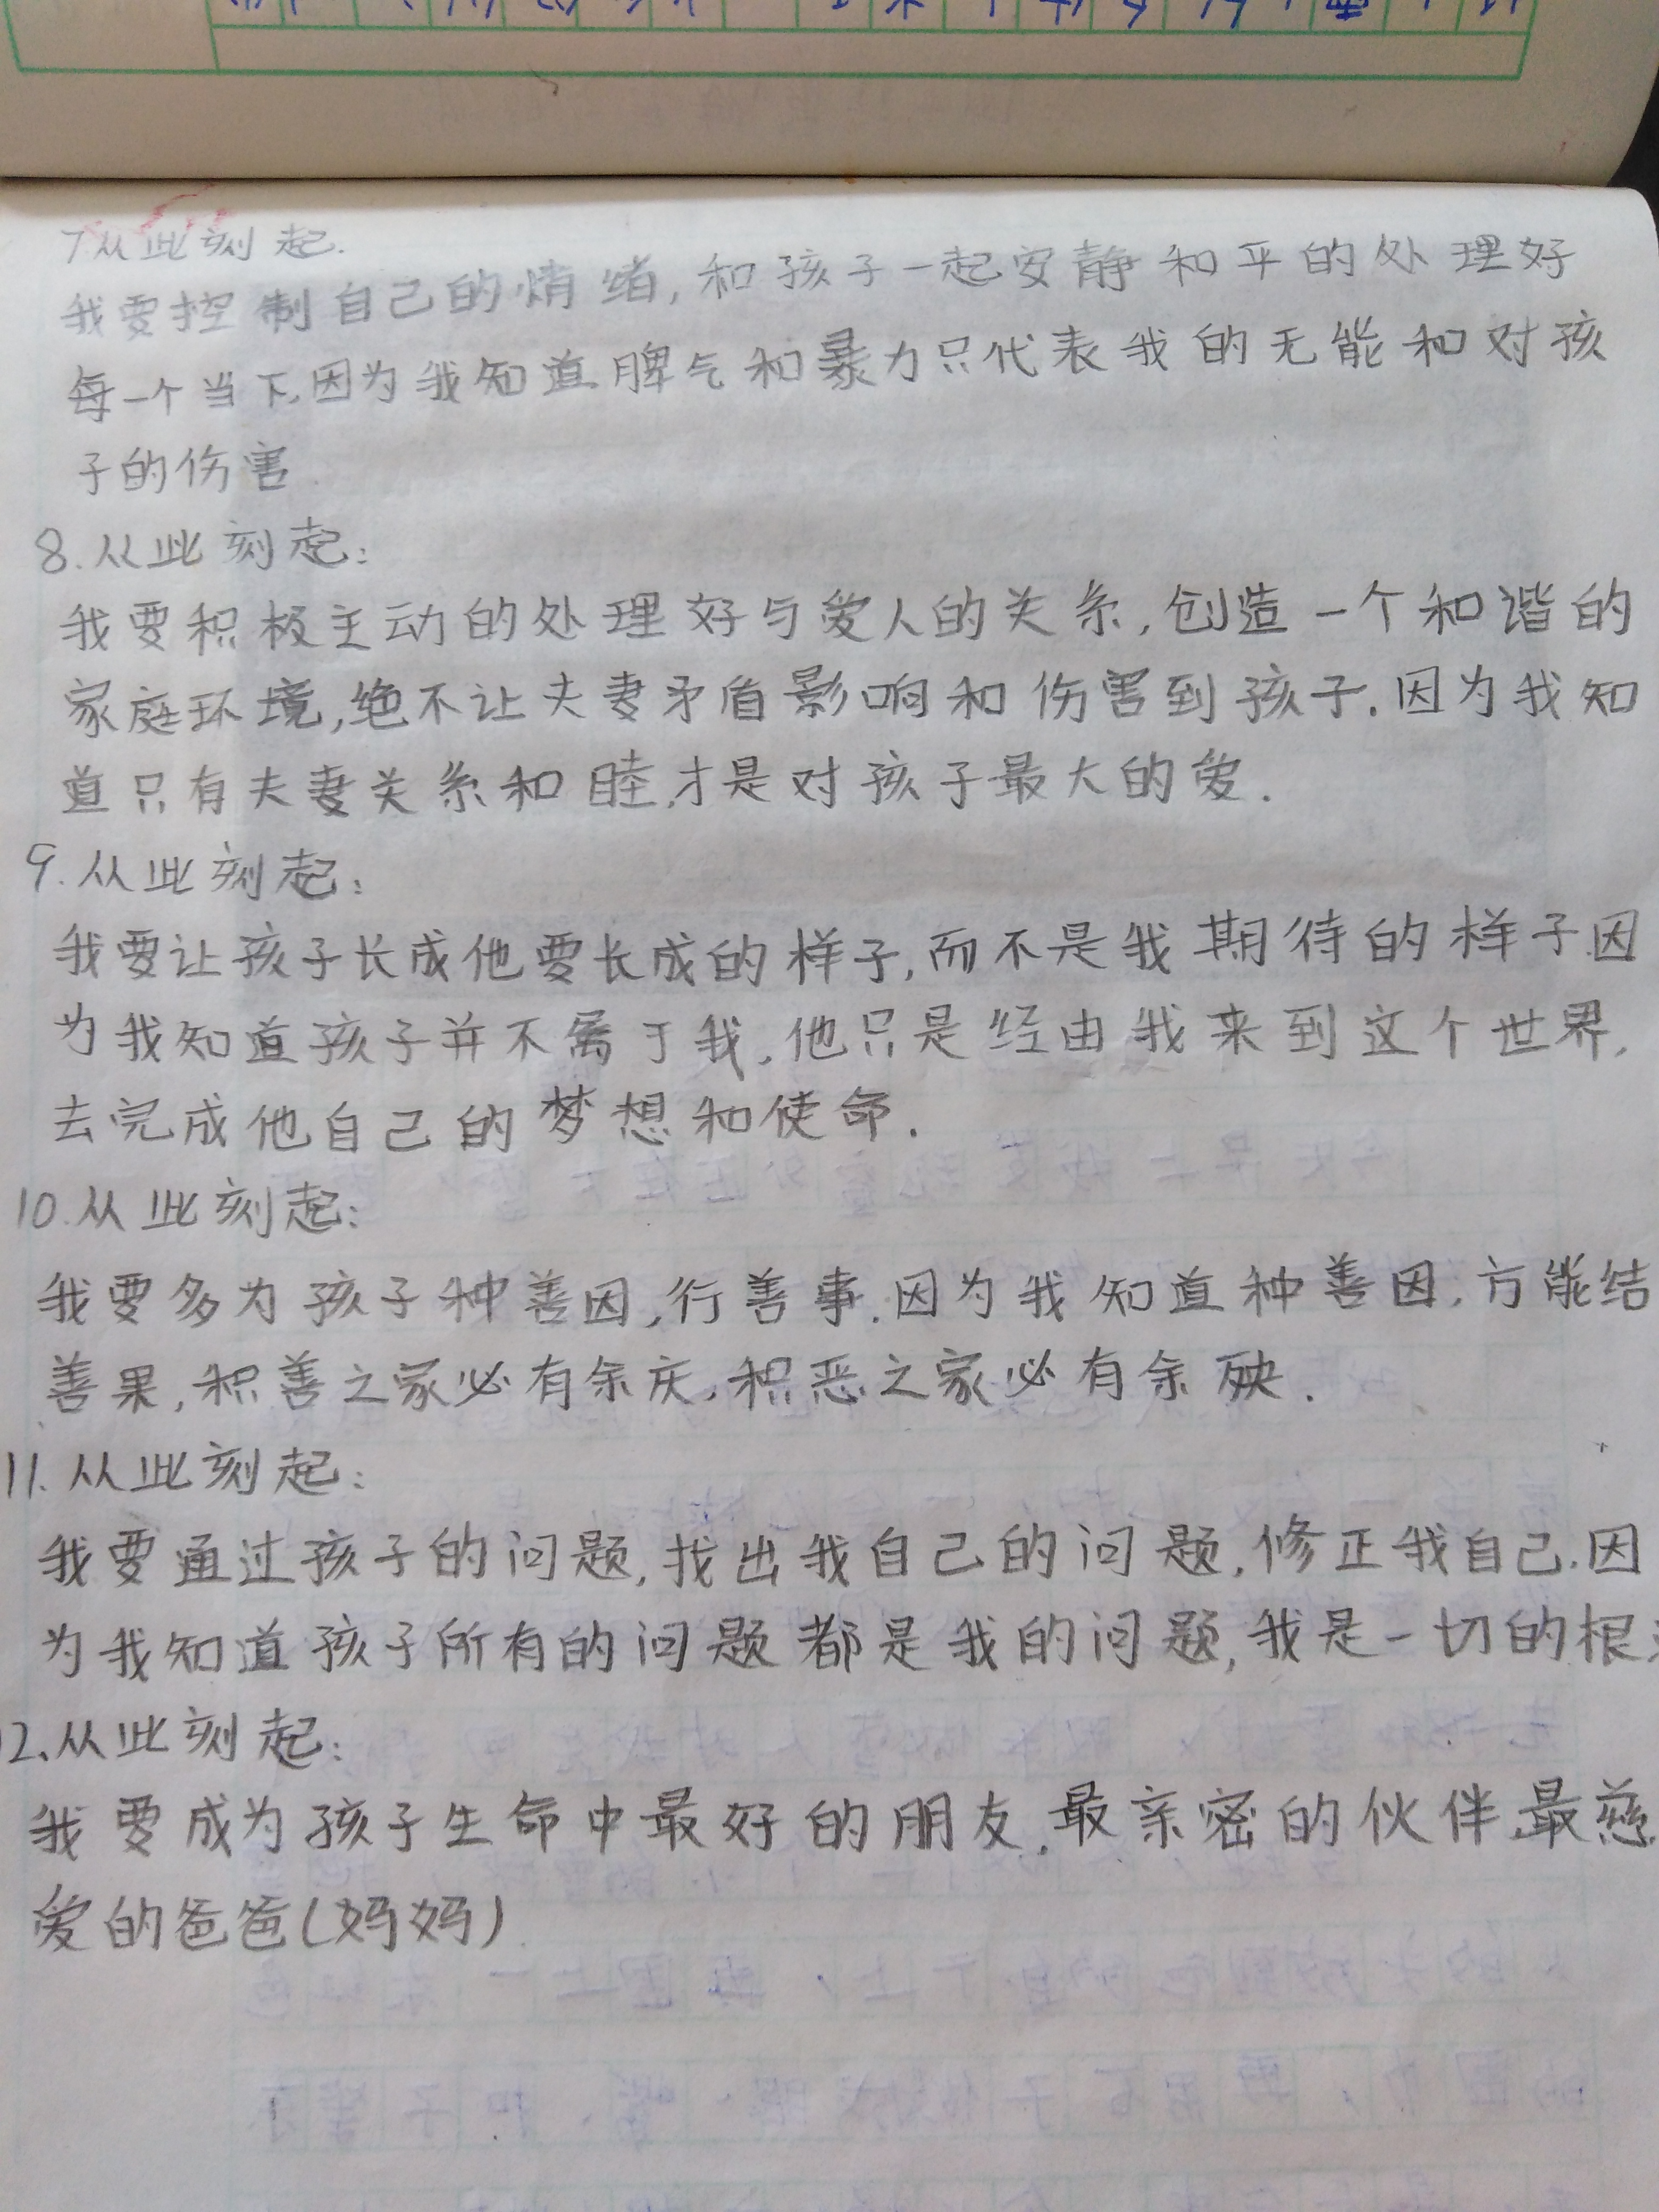 7.从此刻起.
我要控制自己的情绪,和孩子一起安静和平的处理好
每一个当下,因为我知道脾气和暴力只代表我的无能和对孩
子的伤害
8.从此刻起:
我要积极主动的处理好与爱人的关系,创造一个和谐的
家庭环境,绝不让夫妻矛盾影响和伤害到孩子.因为我知
道只有夫妻关系和睦,才是对孩子最大的爱.
9.从此刻起:
我要让孩子长成他要长成的样子,而不是我期待的样子.因
为我知道孩子并不属于我,他只是经由我来到这个世界,
去完成他自己的梦想和使命.
10.从此刻起:
我要多为孩子种善因,行善事.因为我知道种善因,方能结
善果,积善之家必有余庆,积恶之家必有余殃.
11.从此刻起:
我要通过孩子的问题,找出我自己的问题,修正我自己.因
为我知道孩子所有的问题都是我的问题,我是一切的根
12.从此刻起:
我要成为孩子生命中最好的朋友,最亲密的伙伴,最慈
爱的爸爸(妈妈)